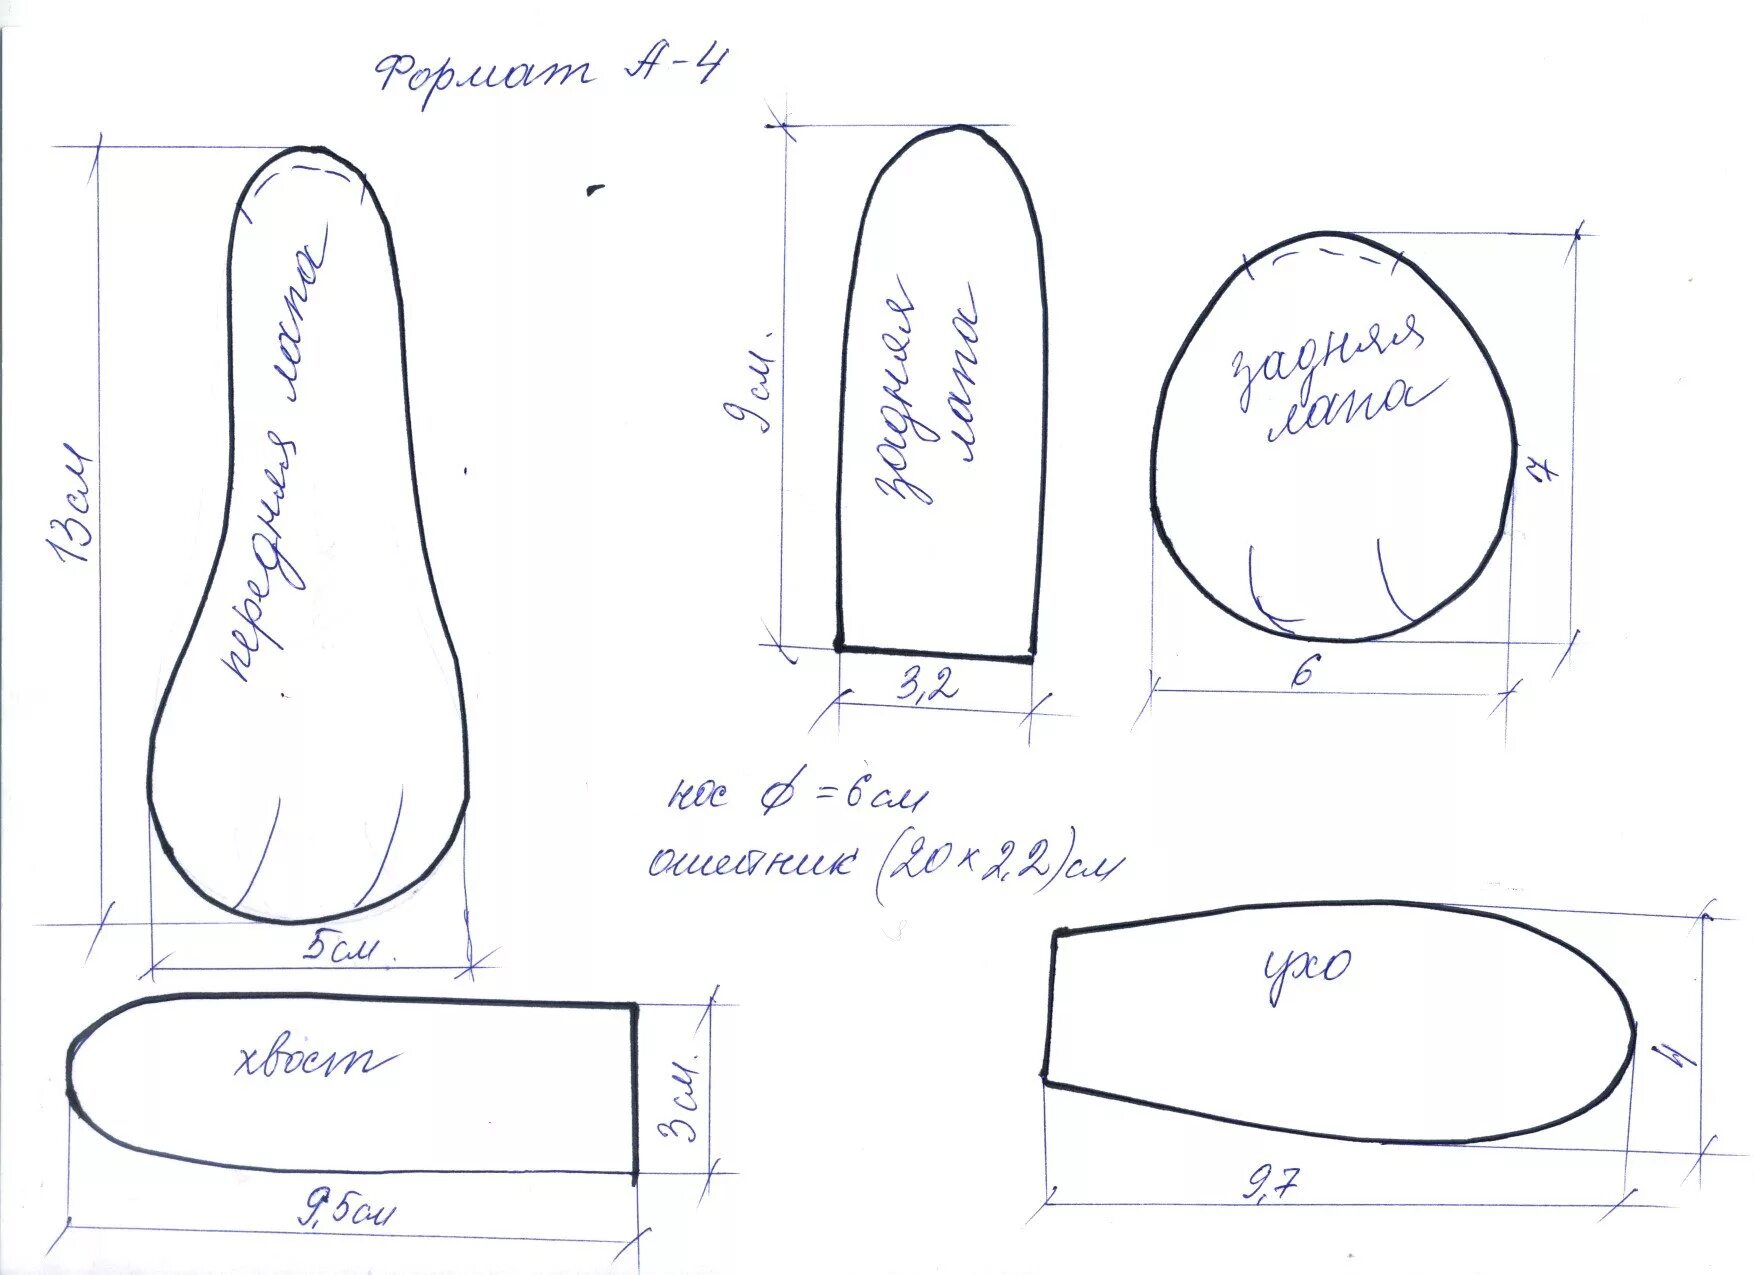 Формат А-4
13см
передняя лапа
5см.
9см.
задняя
лапа
3,2
задняя
лапа
7
6
нос ϕ = 6см
ошейник (20 × 2,2)см
хвост
3см.
9,5см
ухо
4
9,7